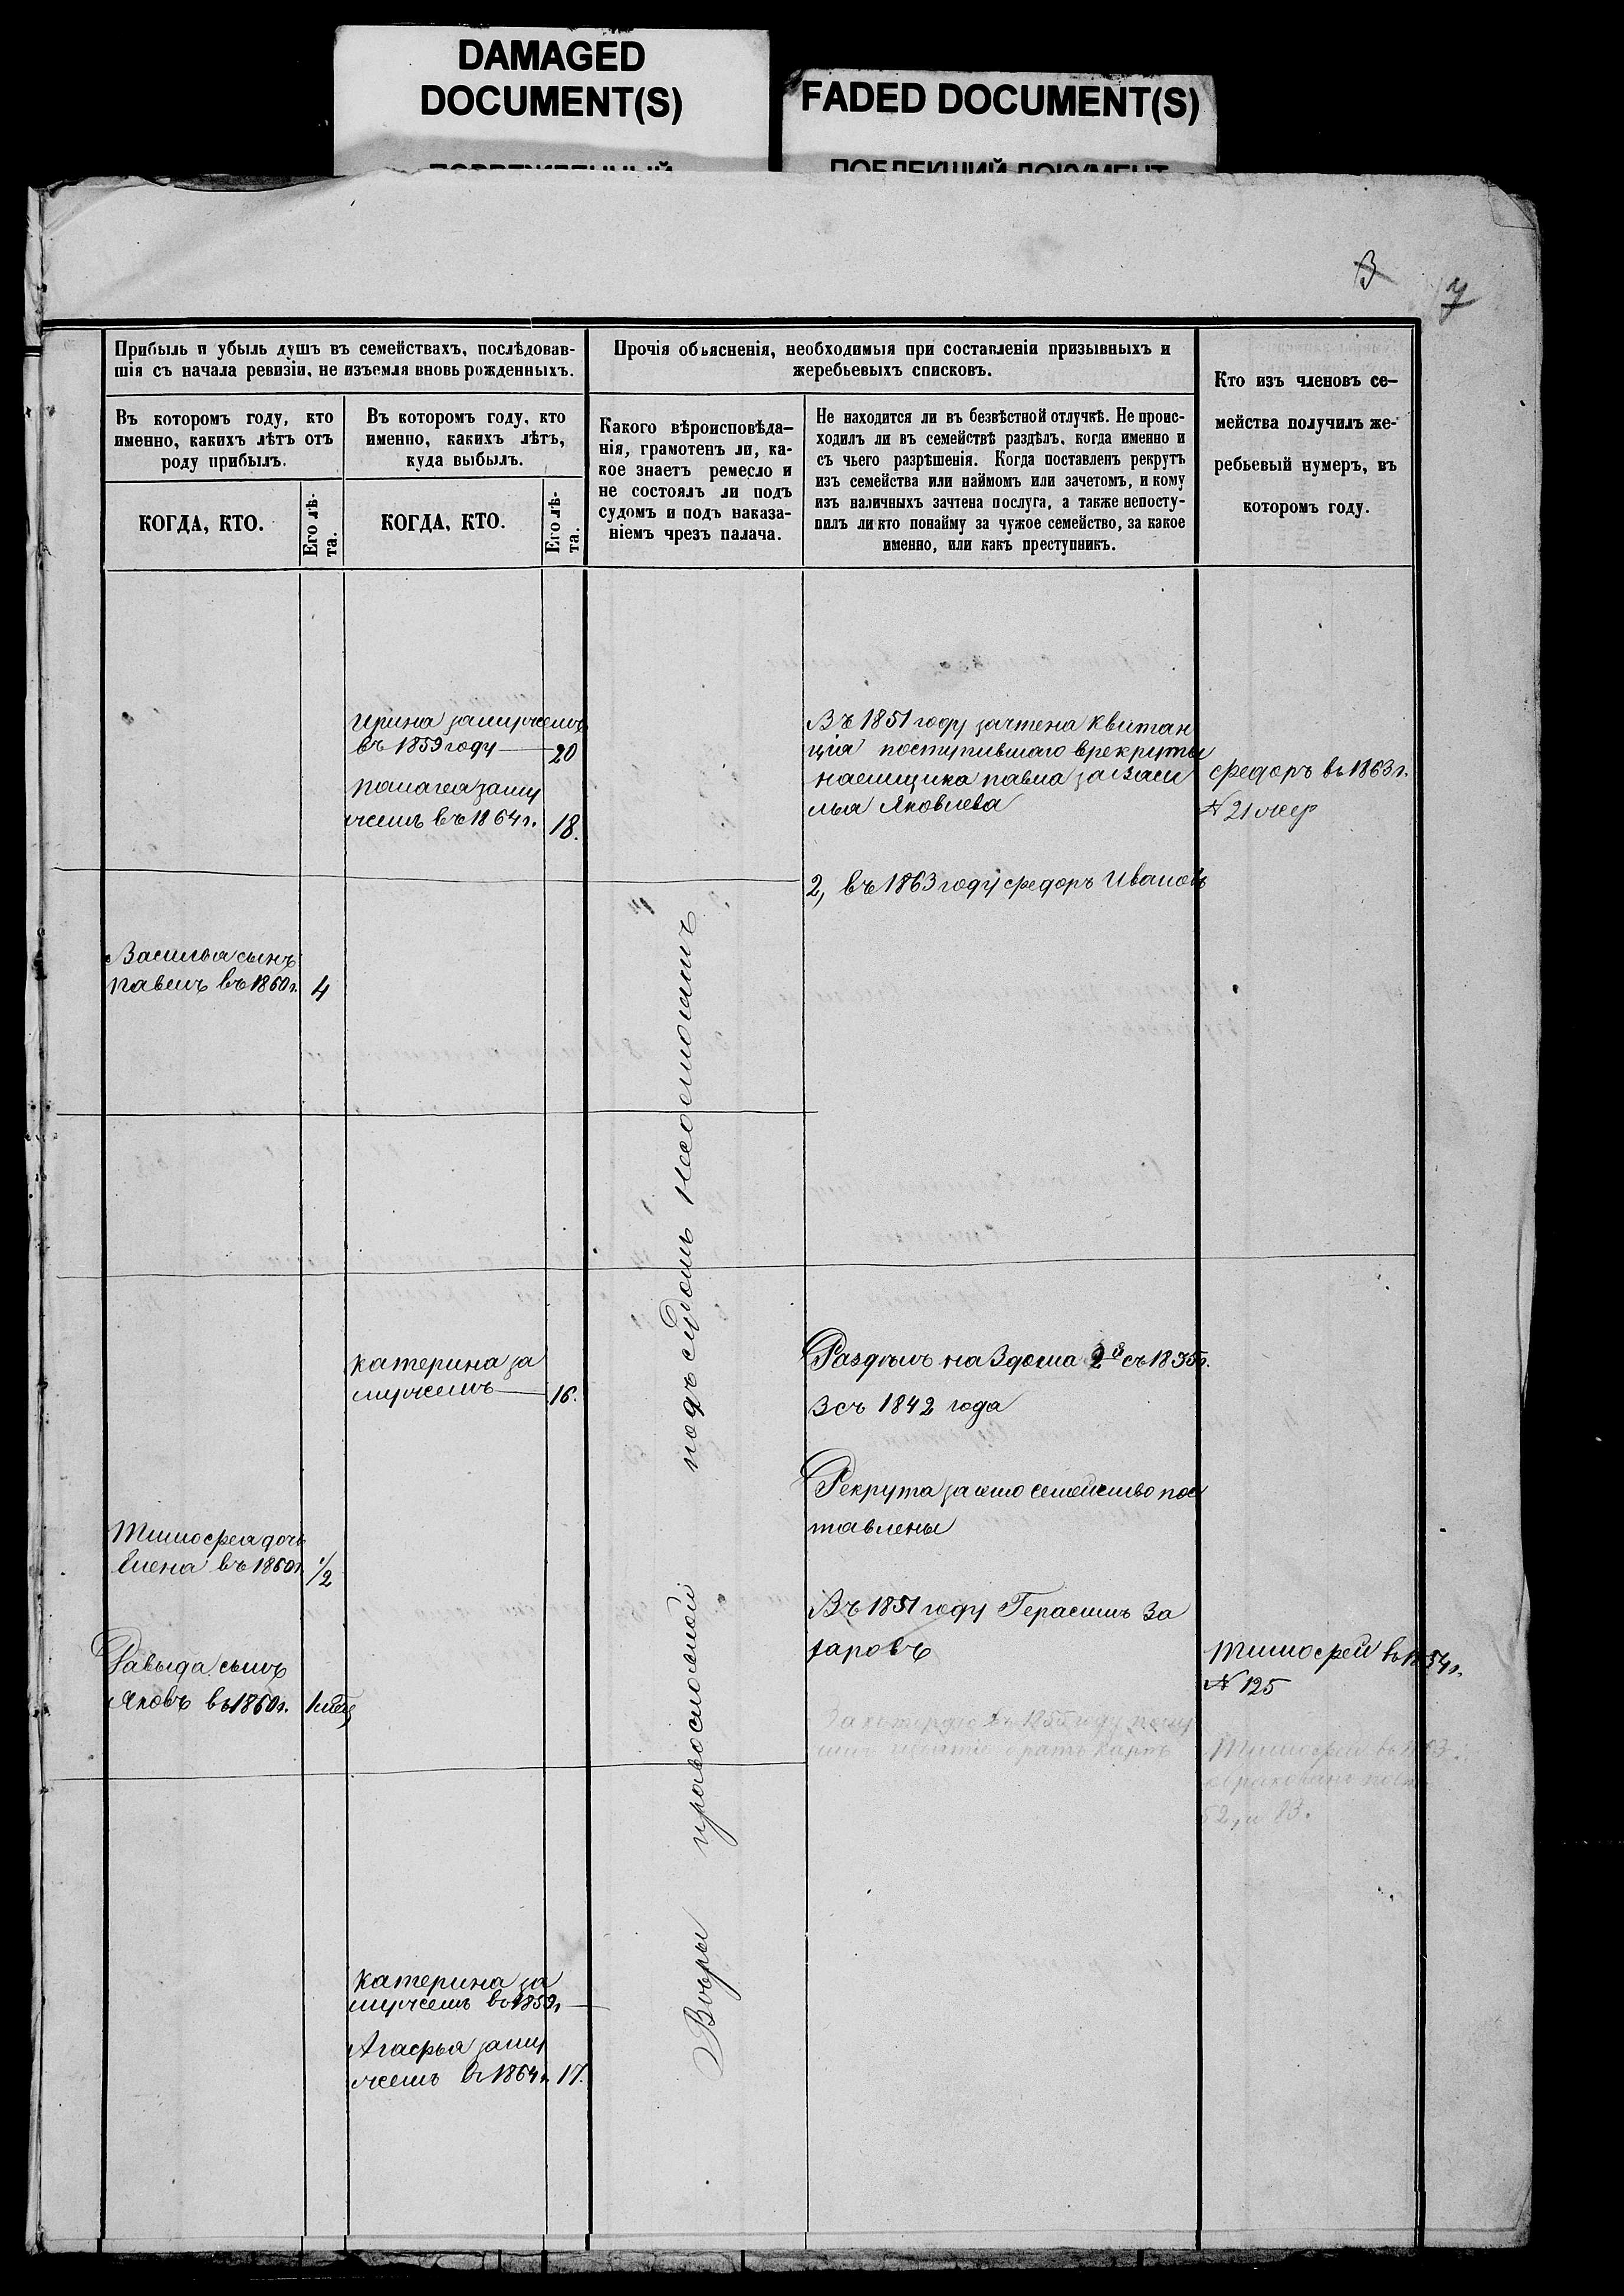 DAMAGED
DOCUMENT(S)
FADED DOCUMENT(S)
3
7
Прибыль и убыль душъ въ семействахъ, послѣдовав-
шія съ начала ревизіи, не изъемля вновь рожденныхъ.
Въ которомъ году, кто
именно, какихъ лѣтъ отъ
роду прибылъ.
Въ которомъ году, кто
именно, какихъ лѣтъ,
куда выбылъ.
КОГДА, КТО.
Его лѣ-
та.
КОГДА, КТО.
Его лѣ-
та.
Прочія объясненія, необходимыя при составленіи призывныхъ и
жеребьевыхъ списковъ.
Какого вѣроисповѣда-
нія, грамотенъ ли, ка-
кое знаетъ ремесло и
не состоялъ ли подъ
судомъ и подъ наказа-
ніемъ чрезъ палача.
Не находится ли въ безвѣстной отлучкѣ. Не проис-
ходилъ ли въ семействѣ раздѣлъ, когда именно и
съ чьего разрѣшенія. Когда поставленъ рекрутъ
изъ семейства или наймомъ или зачетомъ, и кому
изъ наличныхъ зачтена послуга, а также непосту-
пилъ ли кто понайму за чужое семейство, за какое
именно, или какъ преступникъ.
Кто изъ членовъ се-
мейства получилъ же-
ребьевый нумеръ, въ
которомъ году.
ирина замужемъ
въ 1859 году 20
палагеа заму
жемъ въ 1864 г. 18.
Въ 1851 году зачтена квитан
ція поступившаго врекруты
наемщика павла за Васи
лья Яковлева
федоръ въ 1863 г.
№ 21
2, въ 1863 году федоръ Ивановъ
Василья сынъ
павелъ въ 1860 г. 4
катерина за
мужемъ 16.
Раздѣлъ на 3 дома 2й съ 1835 г.
3 съ 1842 года
Рекрута за это семейство пос
тавлены
Тимофея дочь
Елена въ 1860 г. 1/2
Въ 1851 году Герасимъ За
харовъ
Давыда сынъ
Яковъ въ 1860 г.
Тимофей въ 1854 г.
№ 125
въ 1855 году
братъ
Тимофей
катерина за
мужемъ въ 1859 г
Агафья заму
жемъ въ 1864 г. 17.
Вѣры православной подъ судомъ несостоятъ